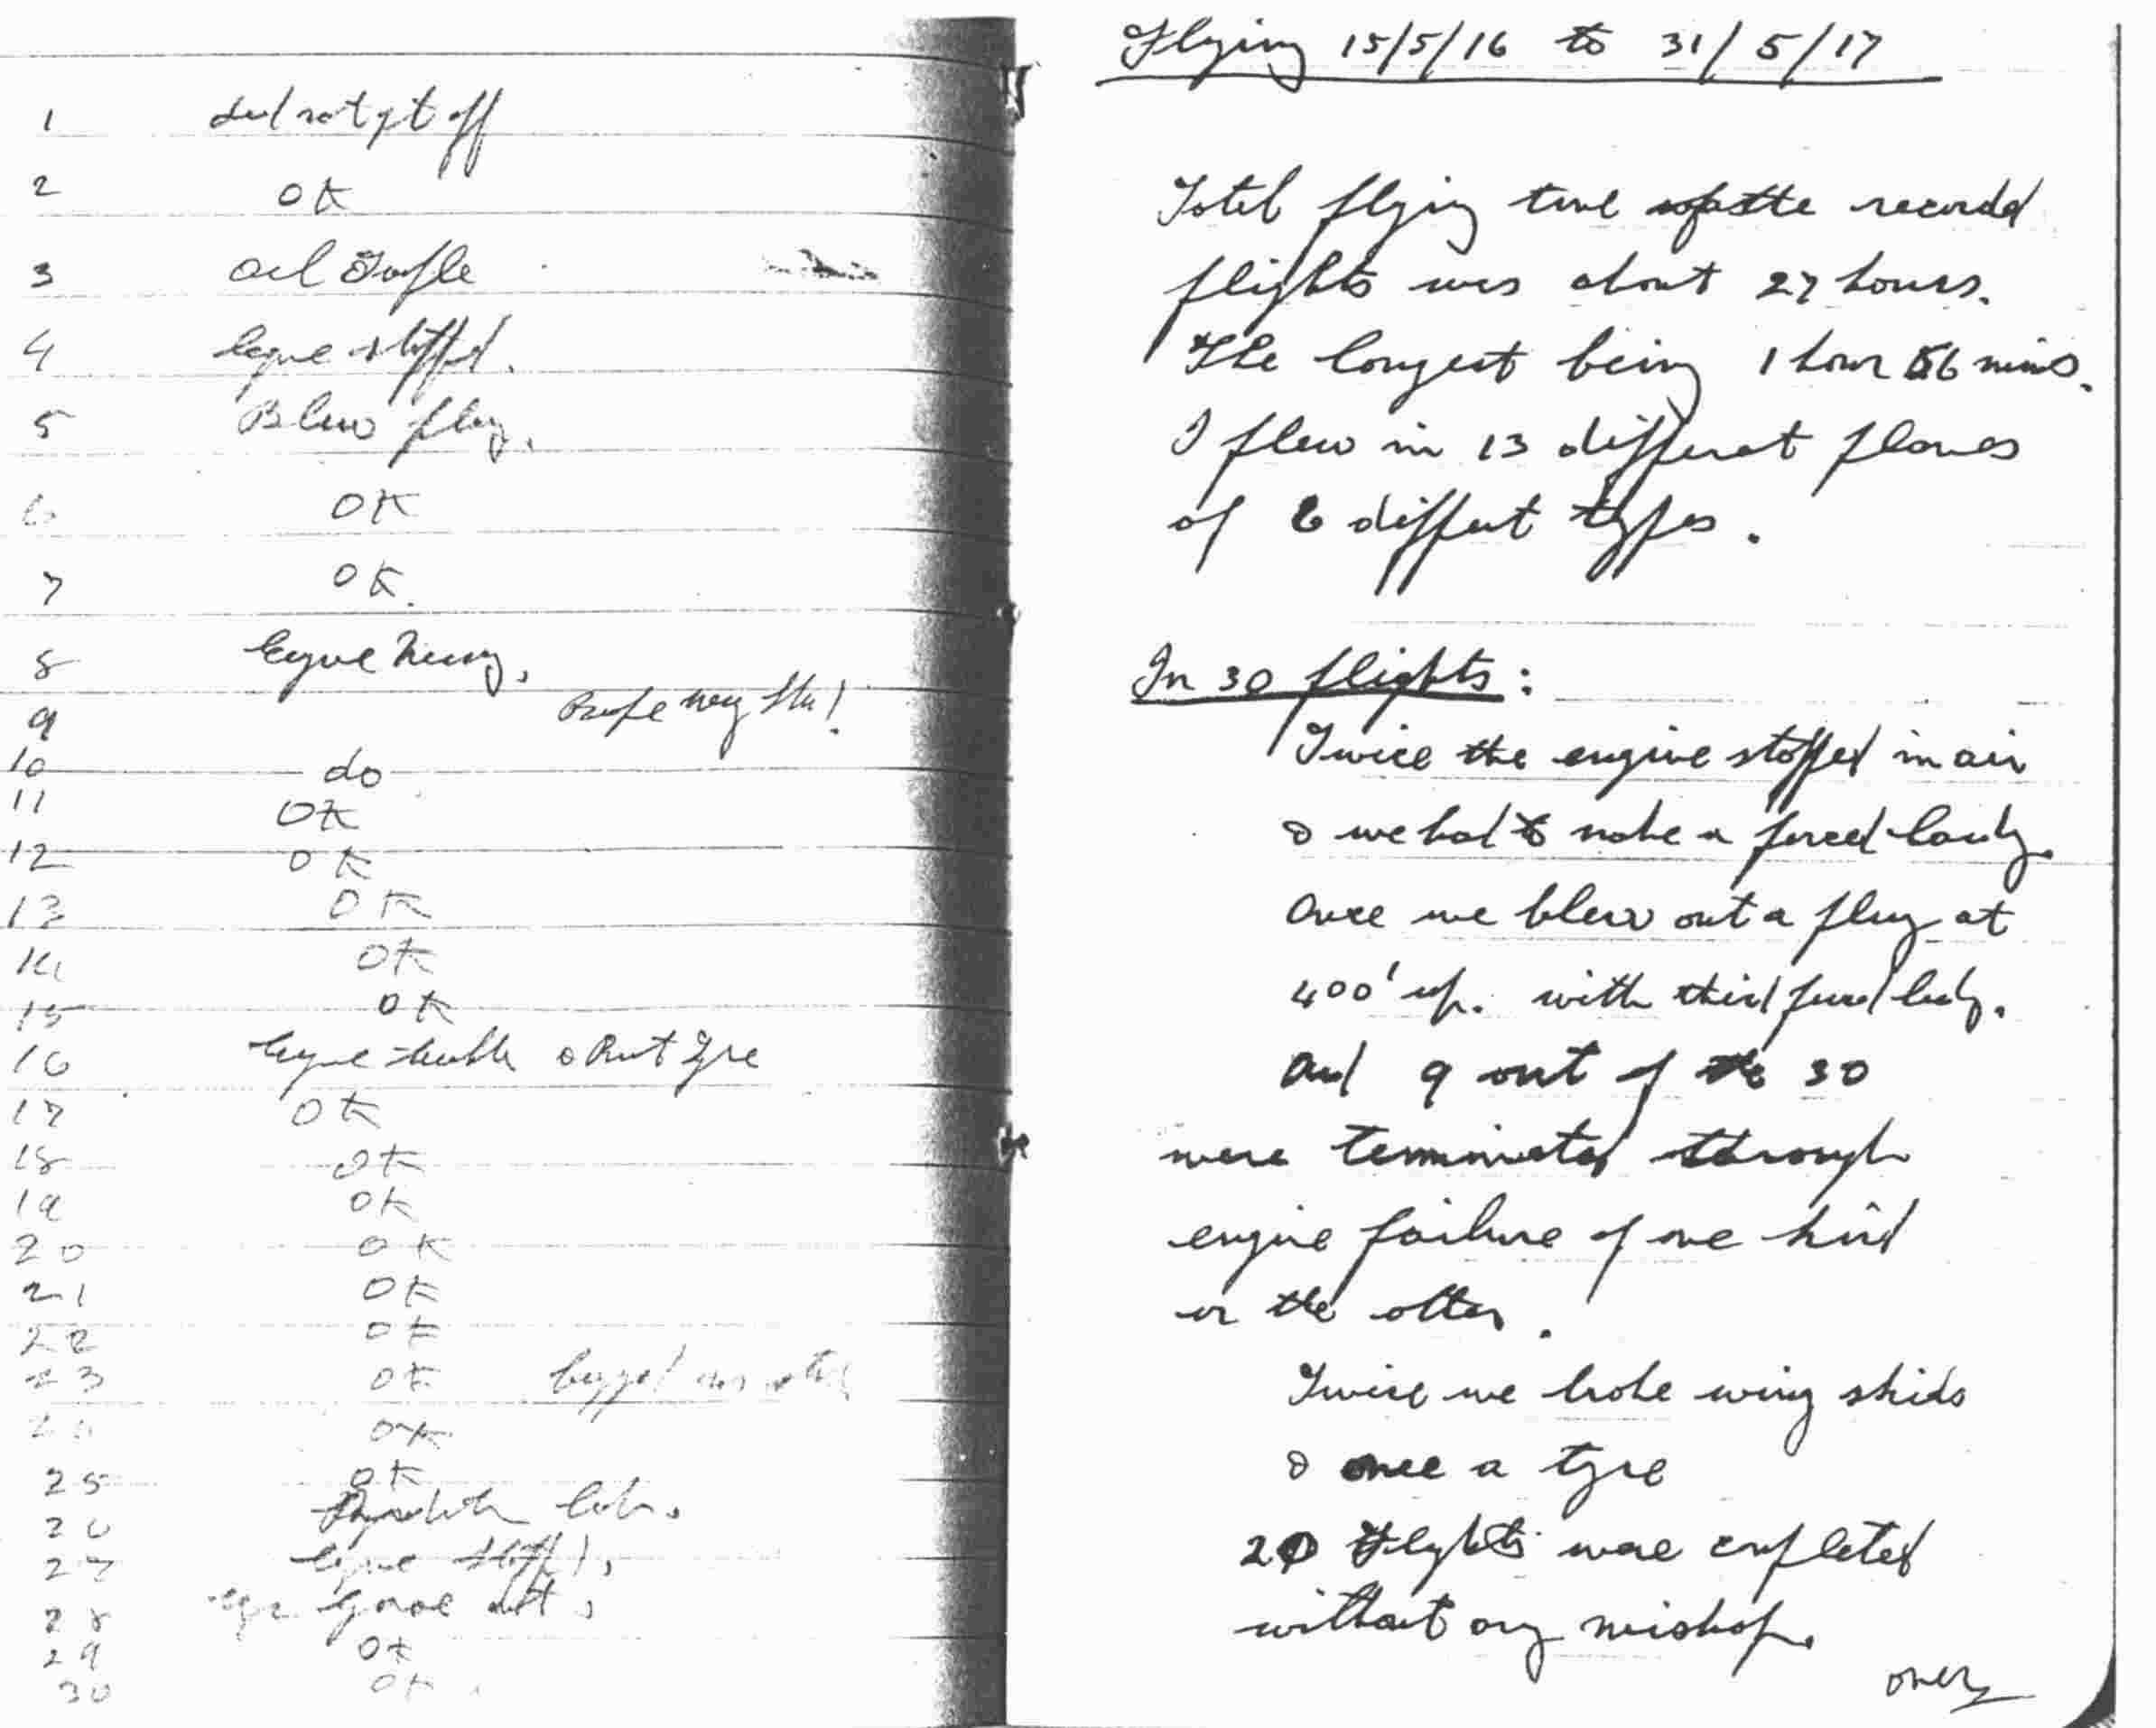 1 did not get off
2 OK
3 Oil
4 Engine stopped.
5 Blew plug.
6 OK
7 OK.
8 Engine
9
10 do
11 OK
12 OK
13 OK
14 OK
15 OK
16 Engine trouble & Burst Tyre
17 OK
18 OK
19 OK
20 OK
21 OK
22 OK
23 OK
24 OK
25 OK
26
27 Engine stopped.
28 gave out.
29 OK
30 OK.
Flying 15/5/16 to 31/5/17
Total flying time of the recorded
flights was about 27 hours.
The longest being 1 hour 56 mins.
I flew in 13 different planes
of 6 different types.
In 30 flights:
Twice the engine stopped in air
& we had to make a forced landing.
Once we blew out a plug at
400' up. with third forced landing.
And 9 out of the 30
were terminated through
engine failure of one kind
or the other.
Twice we broke wing skids
& once a tyre
20 Flights were completed
without any mishap.
over